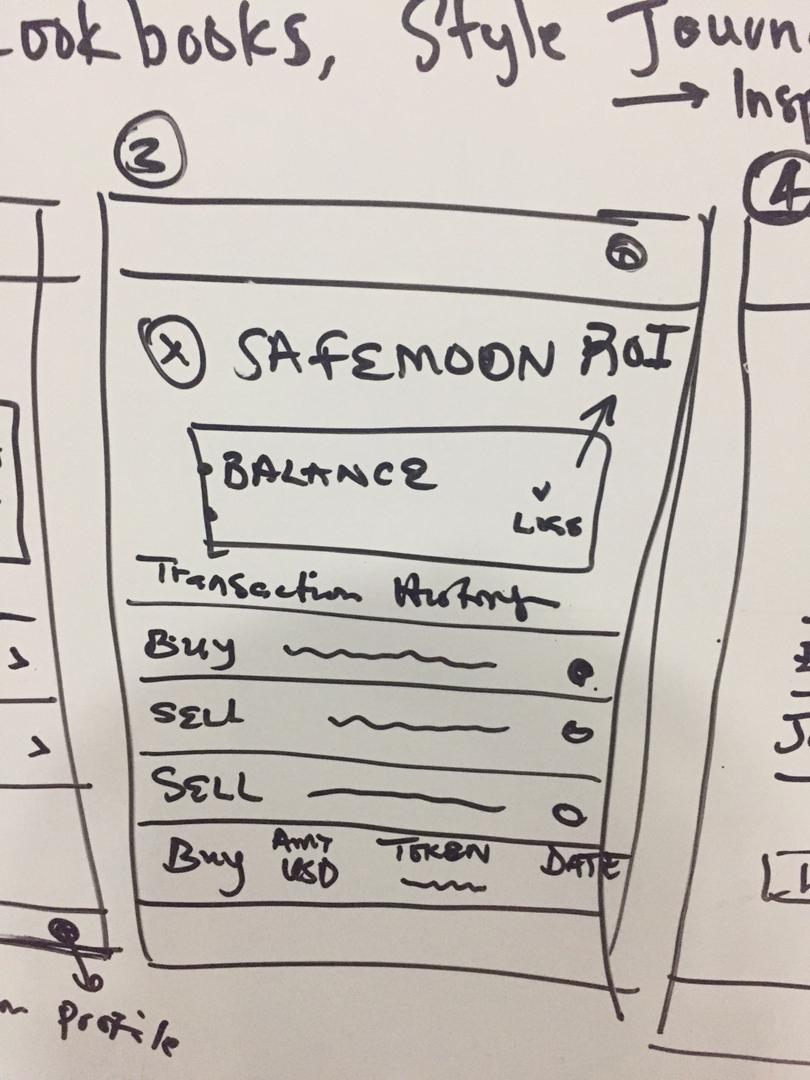 Lookbooks, Style Journ
→ Insp
3
4
X SAFEMOON ROI
BALANCE
Transaction History
Buy
SELL
SELL
Buy AMT USD TOKEN DATE
Profile